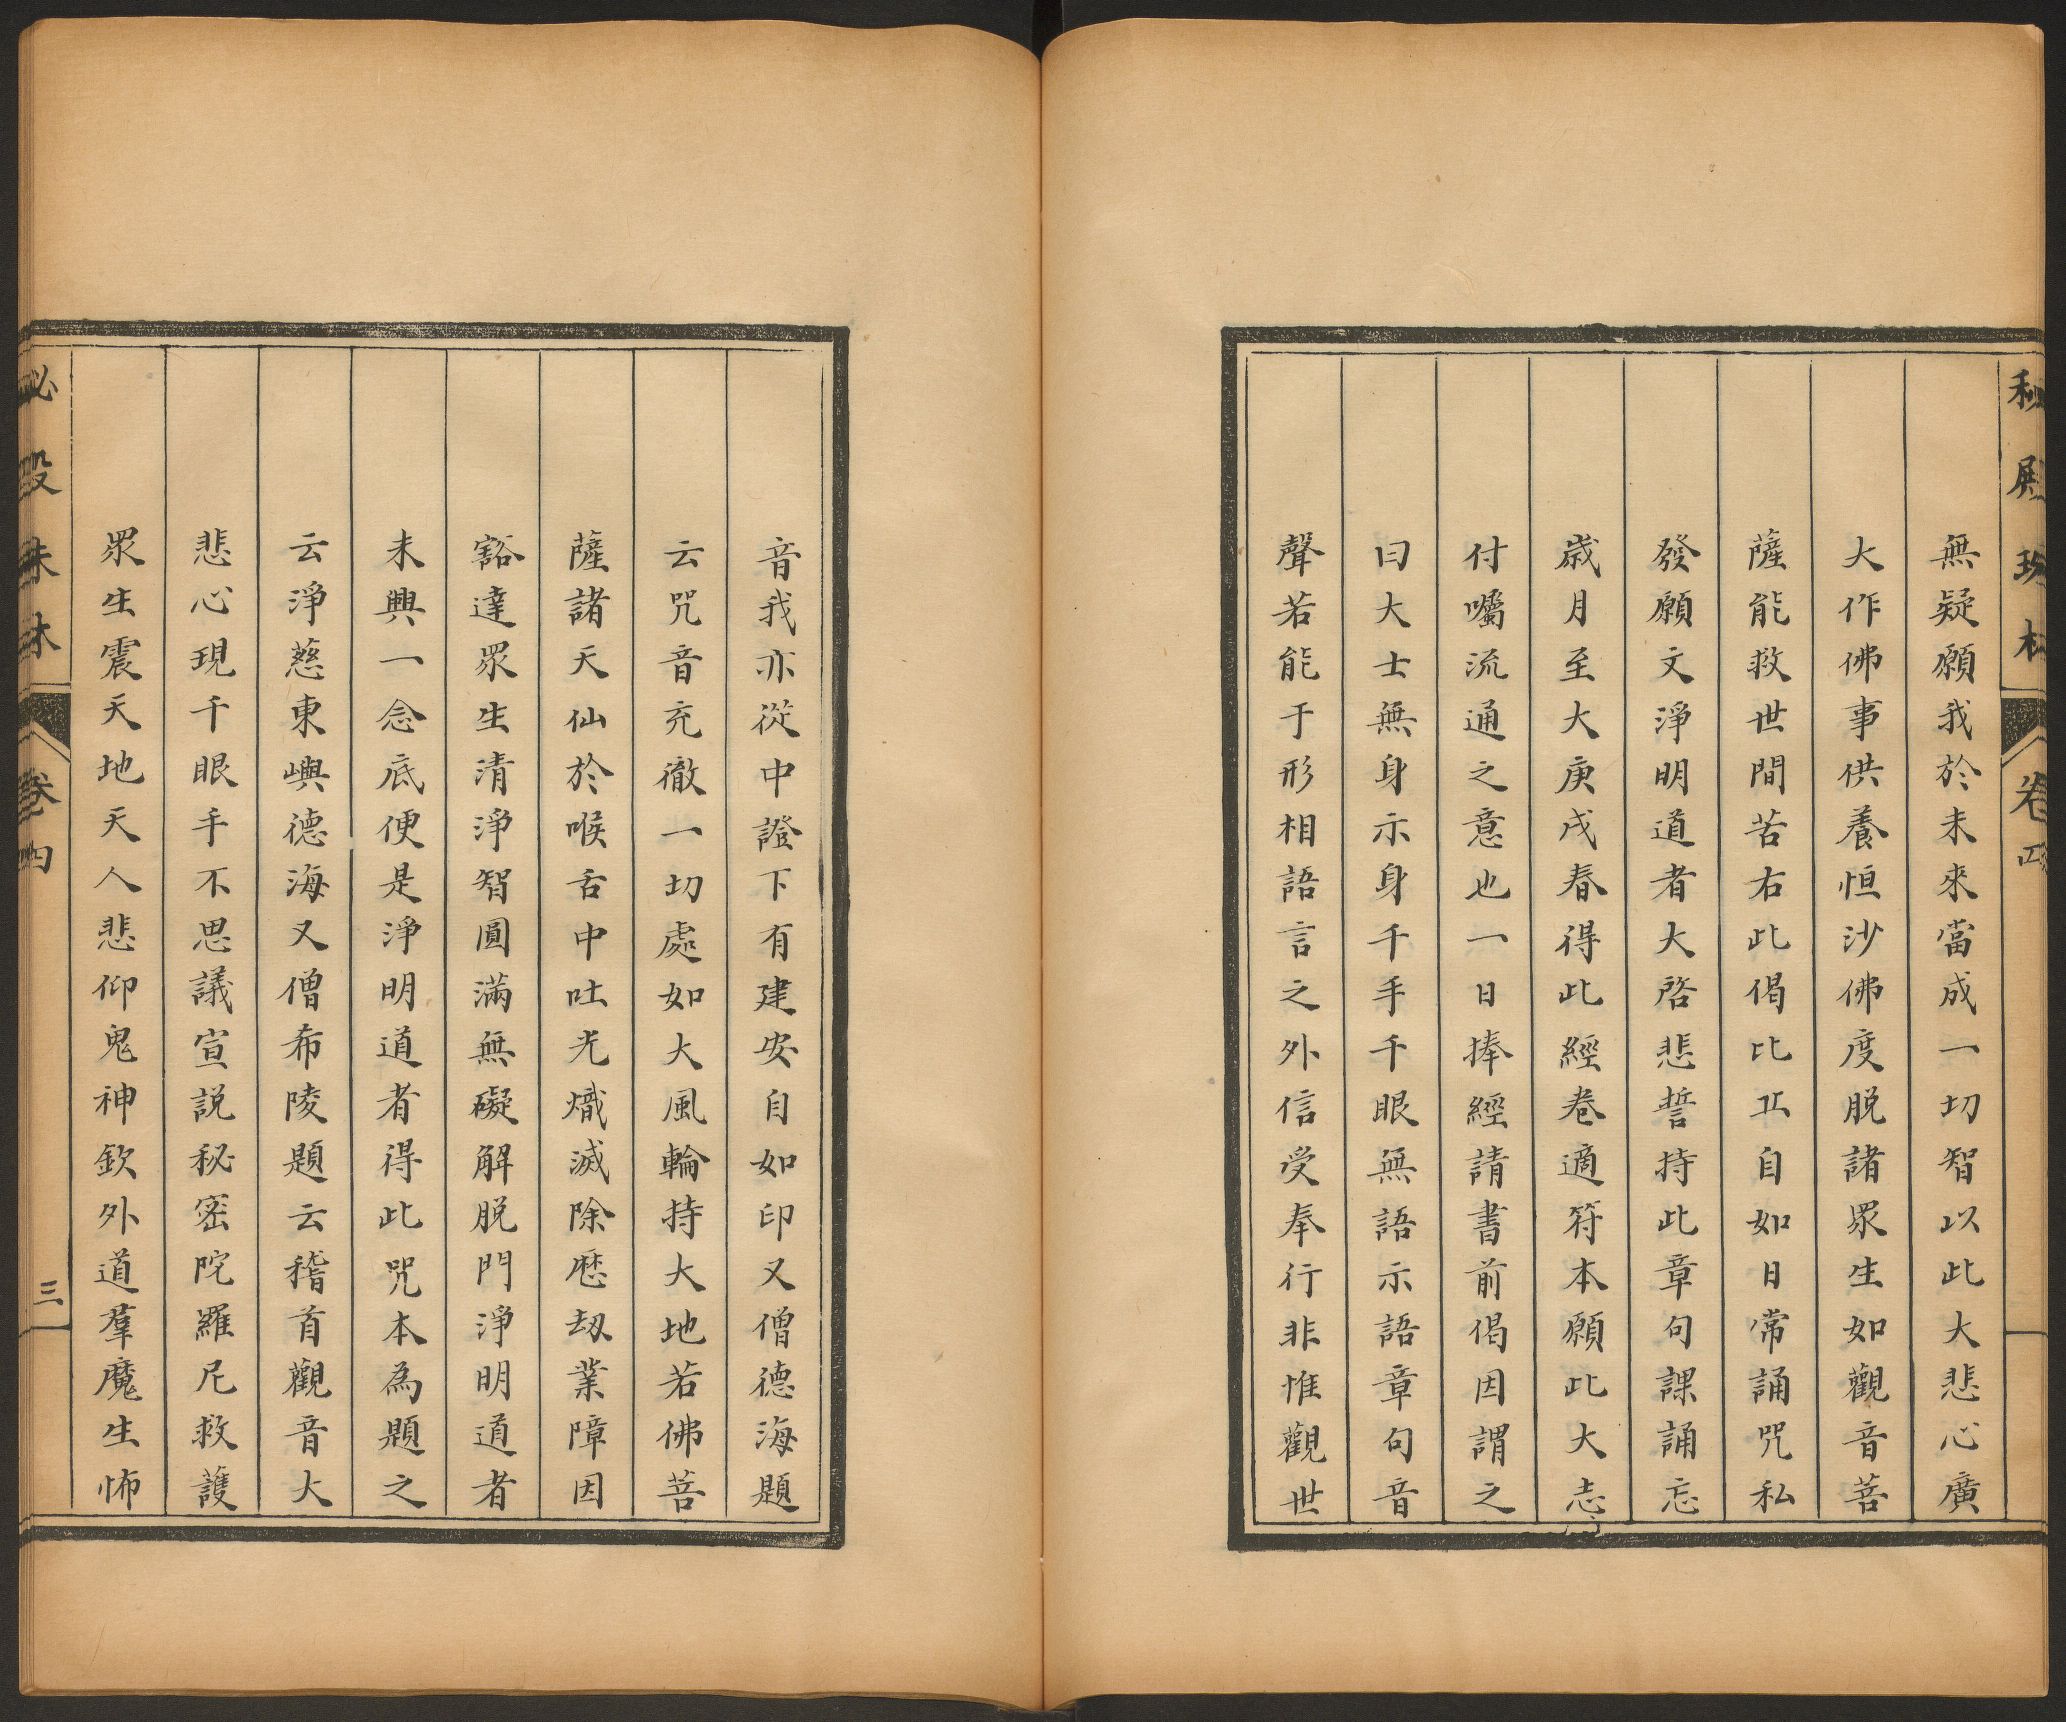 無疑願我於未來當成一切智以此大悲心廣
大作佛事供養恒沙佛度脱諸眾生如觀音菩
薩能救世間苦右此偈比丘自如日常誦咒私
發願文淨明道者大啓悲誓持此章句課誦忘
歲月至大庚戌春得此經卷適符本願此大志
付囑流通之意也一日捧經請書前偈因謂之
曰大士無身示身千手千眼無語示語章句音
聲若能于形相語言之外信受奉行非惟觀世
音我亦從中證下有建安自如印又僧德海題
云咒音充徹一切處如大風輪持大地若佛菩
薩諸天仙於喉舌中吐光熾滅除歷劫業障因
豁達眾生清淨智圓滿無礙解脱門淨明道者
未興一念底便是淨明道者得此咒本為題之
云淨慈東嶼德海又僧布陵題云稽首觀音大
悲心現千眼手不思議宣説秘密陀羅尼救護
眾生震天地天人悲仰鬼神欽外道羣魔生怖
秘殿珠林
卷四
三